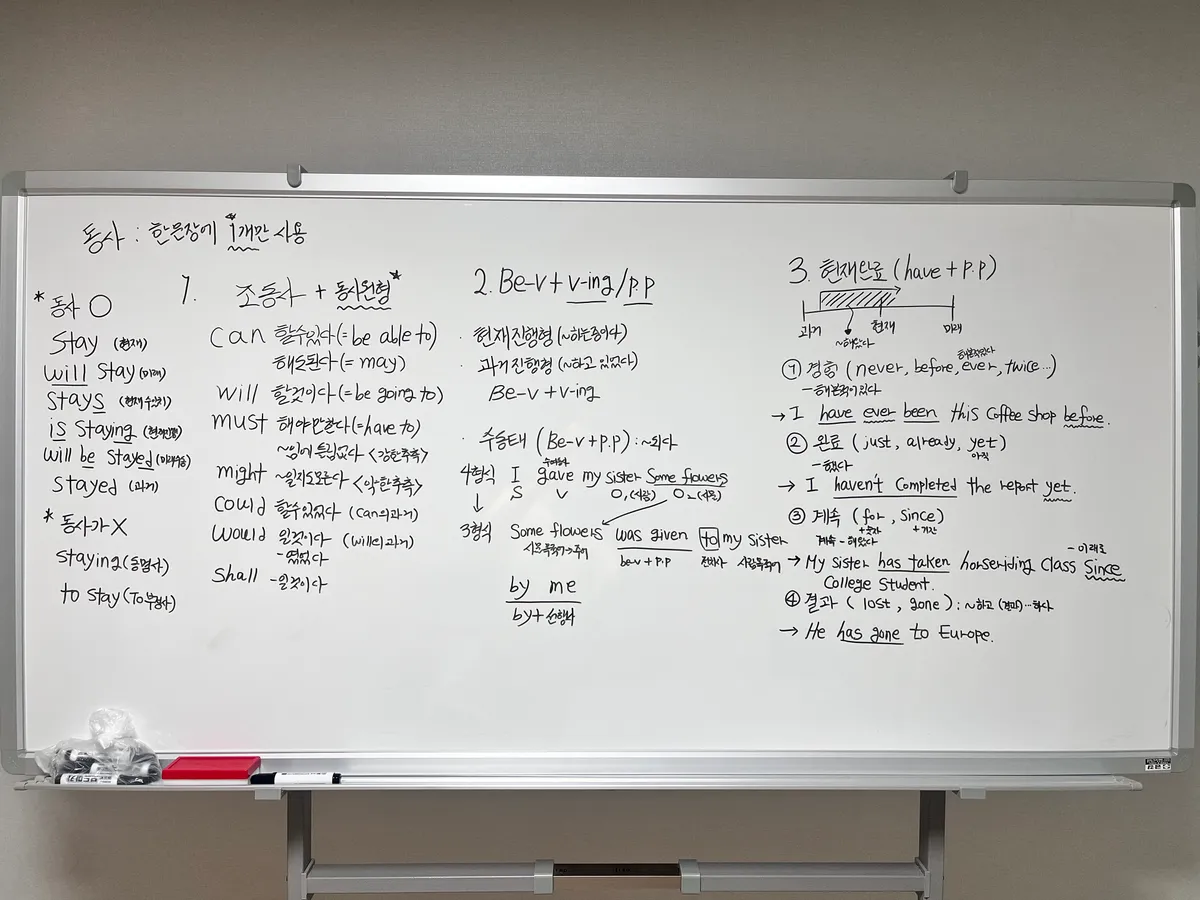 동사 : 한문장에 1개만 사용
* 동사 ○
Stay (현재)
will Stay (미래)
Stays (현재수일치)
is Staying (현재진행)
will be Stayed (미래수동)
Stayed (과거)
* 동사가 X
Staying (동명사)
to stay (To부정사)
1. 조동사 + 동사원형*
can 할수있다 (= be able to)
해도된다 (= may)
will 할것이다 (= be going to)
must 해야만한다 (= have to)
~임에 틀림없다 <강한추측>
might ~일지도모른다 <약한추측>
Could 할수있었다 (Can의과거)
Would 일것이다 (will의과거)
-였었다
Shall -일것이다
2. Be-v + v-ing / p.p
· 현재진행형 (~하는중이다)
· 과거진행형 (~하고 있었다)
Be-v + v-ing
· 수동태 (Be-v + p.p) : ~되다
수여동사
4형식 I gave my sister Some flowers
S V O₁(사람) O₂(사물)
↓
3형식 Some flowers was given to my sister
사물목적어→주어 be-v + p.p 전치사 사람목적어
by me
by +
3. 현재완료 (have + p.p)
과거 현재 미래
~해왔다
① 경험 (never, before, ever, twice...)
해본적있다
-해본적이있다
→ I have ever been this Coffee shop before.
② 완료 (just, already, yet)
-했다 아직
→ I haven't Completed the report yet.
③ 계속 (for, Since)
계속 -해왔다 +숫자 +기간
-이래로
→ My sister has taken horseriding class Since
College Student.
④ 결과 (lost, gone) : ~하고 (결과)...하다
→ He has gone to Europe.